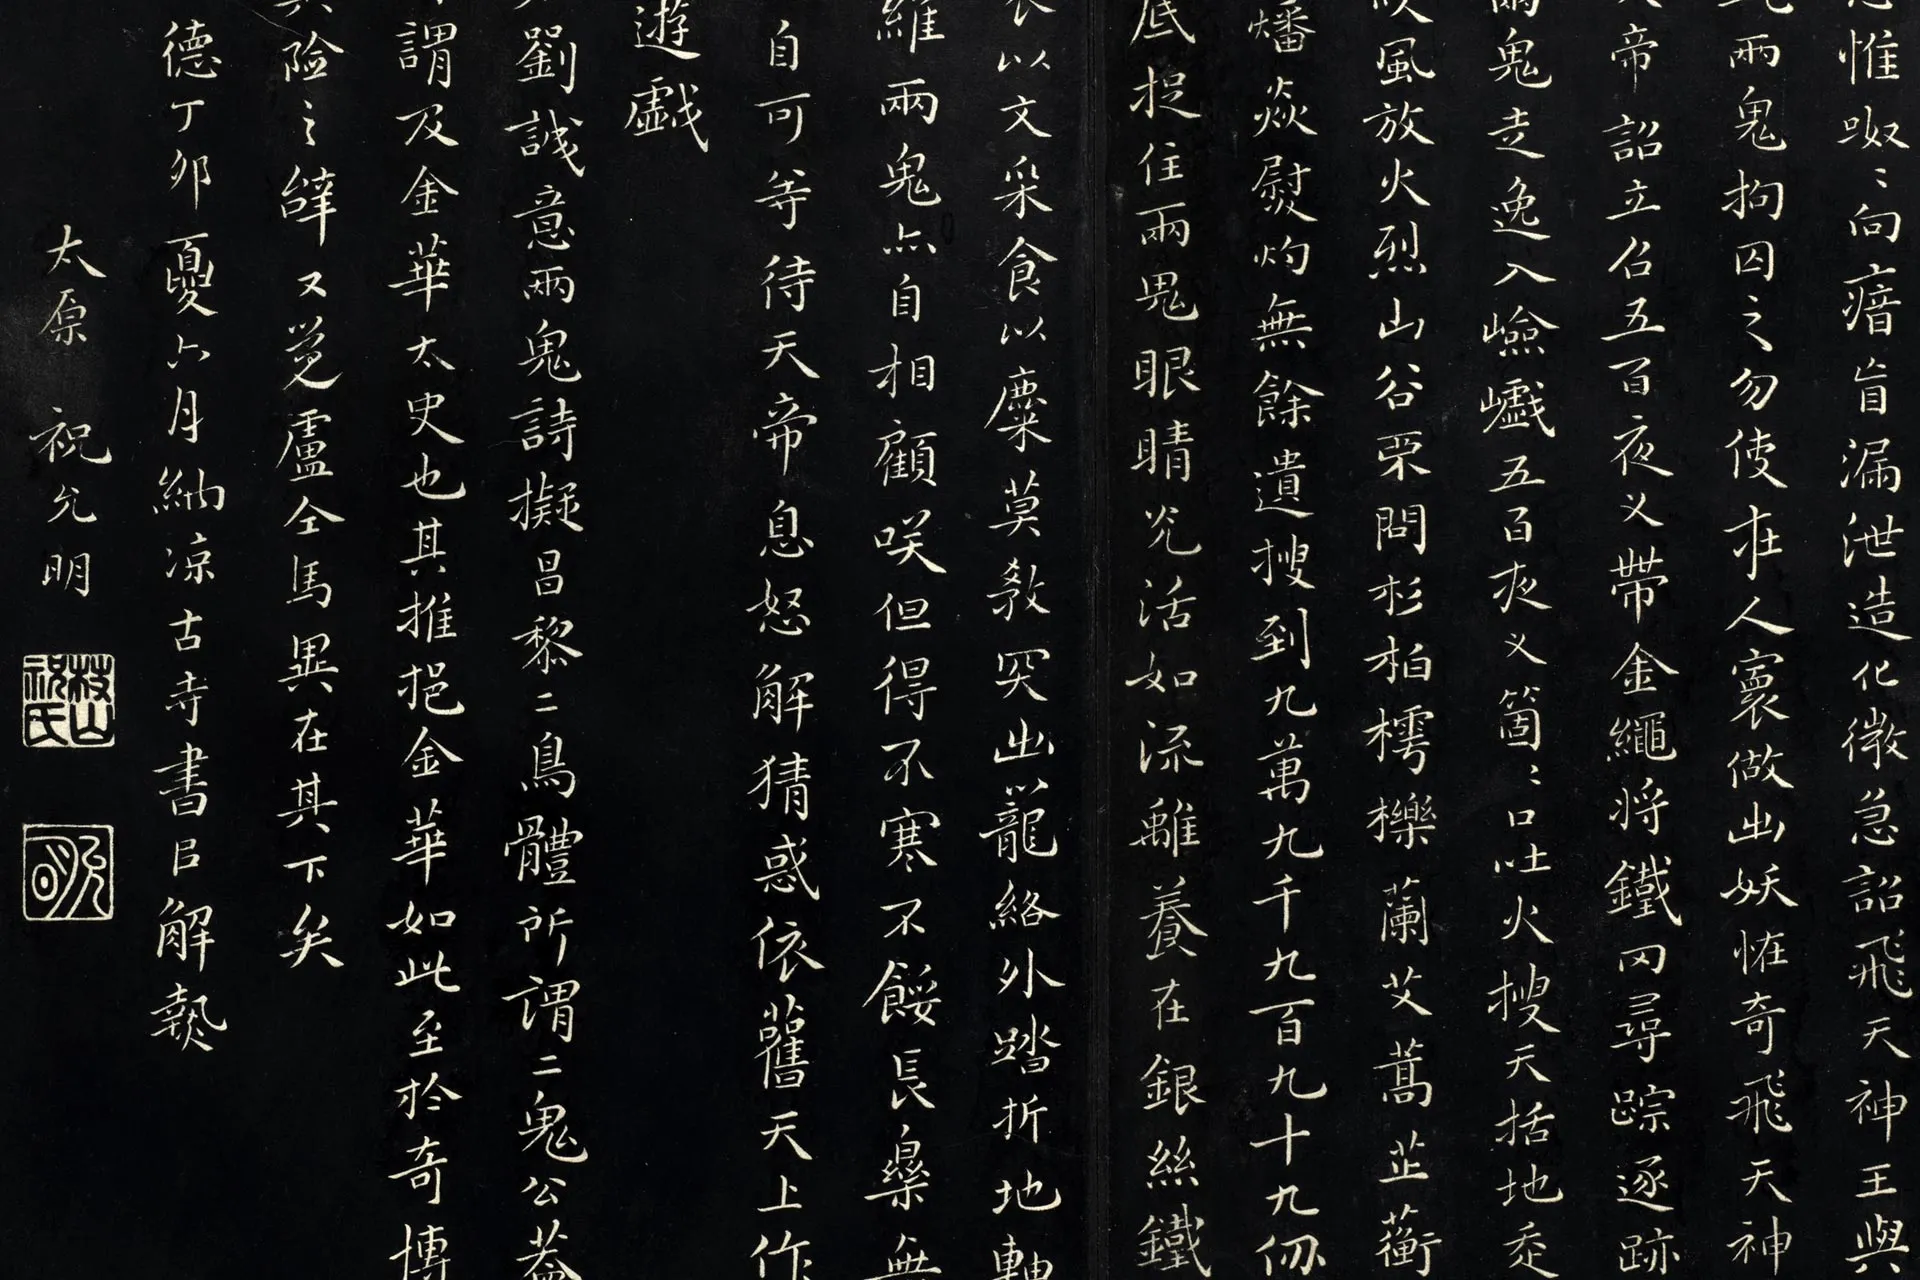 惟呶〻向瘖盲漏泄造化微急詔飛天神王與
兩鬼拘囚之勿使在人寰做出妖怪奇飛天神
帝詔立召五百夜义帶金繩將鐵网尋踪逐跡
兩鬼走逸入嶮巇五百夜义箇〻口吐火搜天括地
風放火烈山谷不問杉柏樗櫟蘭艾蒿芷蘅
燔焱熨灼無餘遺搜到九萬九千九百九十九仞
底捉住兩鬼眼睛光活如流離養在銀絲鐵
衣以文采食以麋莫教突出籠絡外踏折地軸
維兩鬼亦自相顧咲但得不寒不餒長樂無
自可等待天帝息怒解猜惑依舊天上作
遊戲
劉誠意兩鬼詩擬昌黎二鳥體所謂二鬼公蓋
謂及金華太史也其推挹金華如此至於奇博
險之辭又覺盧仝馬異在其下矣
德丁卯夏六月納凉古寺書㠯解熱
太原 祝允明
枝山祝氏
明